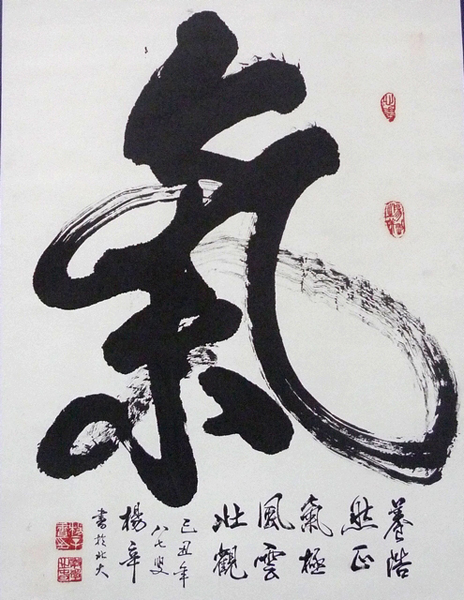 氣
養浩
然正
氣極
風雲
壯觀
己丑年
八七叟
楊辛
書於北大